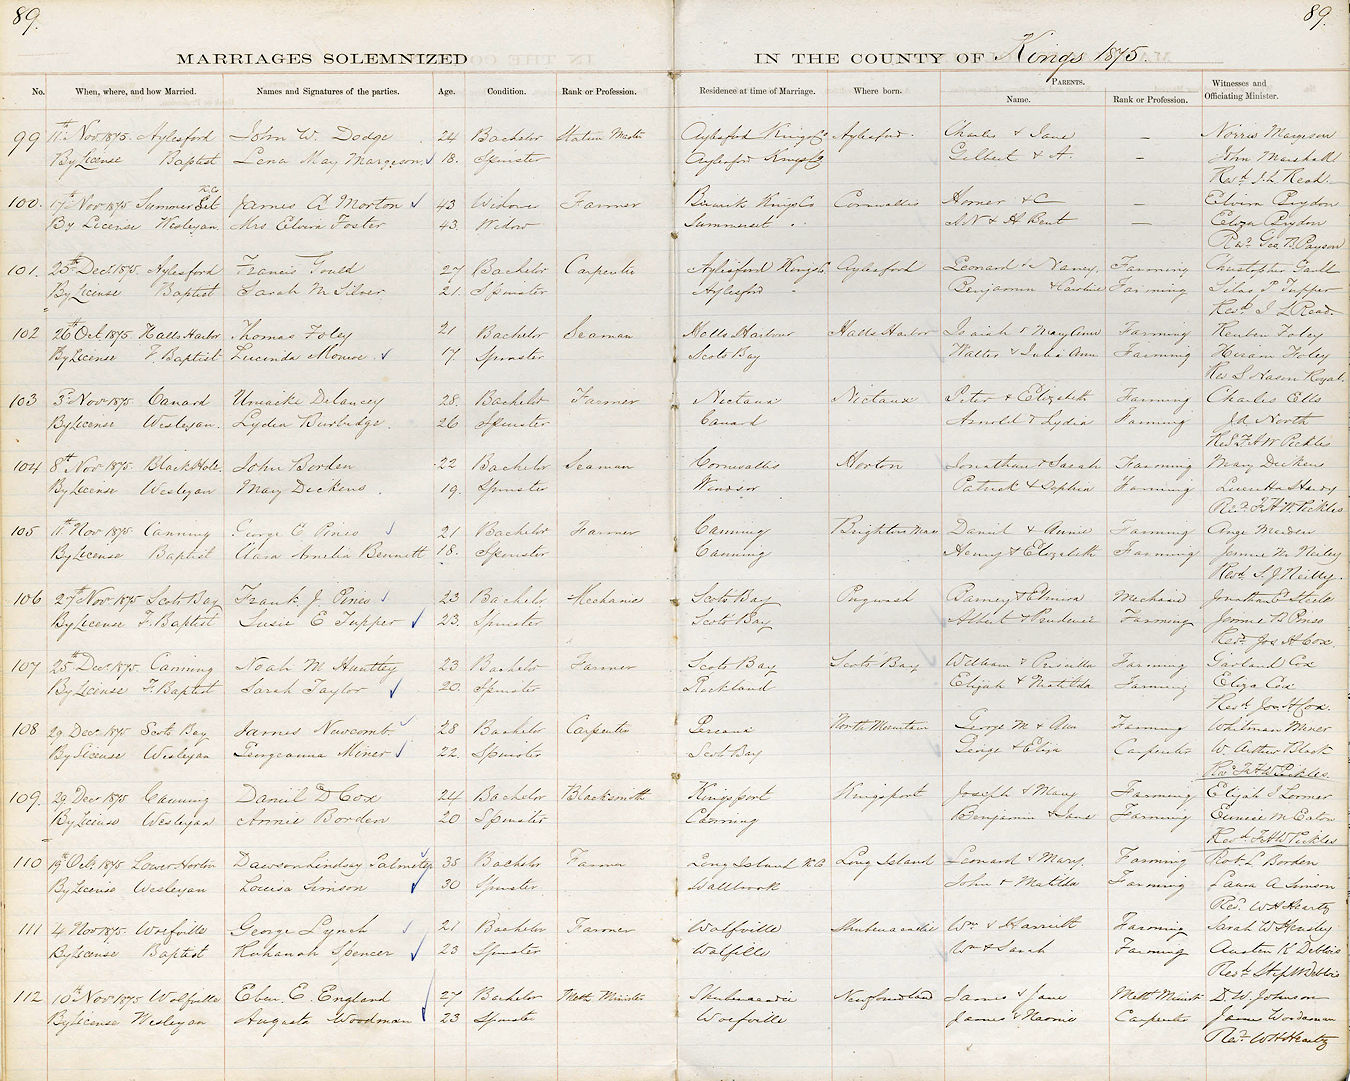 89.
89.
MARRIAGES SOLEMNIZED IN THE COUNTY OF Kings 1875.
No. When, where, and how Married. Names and Signatures of the parties. Age. Condition. Rank or Profession. Residence at time of Marriage. Where born. PARENTS. Name. Rank or Profession. Witnesses and Officiating Minister.
99 11th Nov 1875. Aylesford John W. Dodge 24 Bachelor Station Master Aylesford Kings Co Aylesford. Charles & Jane — Norris Margeson
By License Baptist Lena May Margeson 18. Spinster Aylesford Kings Co Gilbert & A. — John Marshall
Revd. J. L. Read.
K. Co
100. 17th Nov 1875 Summer Set James A Morton 43 Widower Farmer Berwick Kings Co Cornwallis Homer & C —
By License Wesleyan Mrs Elvira Foster 43. Widow Summerset " & H Bent —
Revd. Geo. B. Payson
101. 25th Dec. 1875. Aylesford Francis Gould 27 Bachelor Carpenter Aylesford Kings Co Aylesford Leonard & Nancy, Farming Christopher Gault
By License Baptist Sarah M Silver 21. Spinster Aylesford " Benjamin & Caroline Farming Silas P Tupper
Revd. J L Read.
102 26th Oct 1875 Halls Harbor Thomas Foley 21 Bachelor Seaman Halls Harbour Halls Harbor Isaiah & Mary Ann Farming Reuben Foley
By License F. Baptist Lucinda Monroe 17 Spinster Scots Bay Walter & Julia Ann Farming Hiram Foley
Rev S Nason Royal.
103 3d Nov 1875 Canard Uniacke Delancey 28. Bachelor Farmer Nictaux Nictaux Peter & Elizabeth Farming Charles Ells
By License Wesleyan. Lydia Burbidge. 26 Spinster Canard Arnold & Lydia Farming Jd North
Revd. F. H W Pickles
104 8th Nov 1875. Black Hole. John Borden 22 Bachelor Seaman Cornwallis Horton Jonathan & Sarah Farming Mary Dickens
By License Wesleyan Mary Dickens. 19. Spinster Windsor Patrick & Sophia Farming
Revd. F. H. W. Pickles
105 11th Nov 1875 Canning George E Pineo 21 Bachelor Farmer Canning Brighton Mass Daniel & Annie Farming
By License Baptist Ann Amelia Bennett 18. Spinster Canning Henry & Elizabeth Farming Jennie M. Neiley
Revd. S. J Neilly.
106 27th Nov 1875 Scots Bay Frank J. Pineo 23 Bachelor Mechanic Scots Bay Pugwash Barney & Elmira Mechanic Jonathan E Steele
By License F. Baptist Susie E Tupper 23. Spinster Scots Bay Albert & Prudence Farming Jennie B Pineo
Revd. Jos. H Cox.
107 25th Dec. 1875. Canning Noah M Huntley 23 Bachelor Farmer Scots Bay Scots Bay William & Priscilla Farming Garland Cox
By License F. Baptist Sarah Taylor 20. Spinster Rockland Elijah & Matilda Farming Eliza Cox
Revd. Jos H Cox.
108 29. Dec. 1875 Scots Bay James Newcomb 28 Bachelor Carpenter Pereaux North Mountain George M & Ann Farming Whitman Miner
By License Wesleyan Georgeanna Miner 22. Spinster Scots Bay George & Eliza Carpenter W. Arthur Black
Revd. F. H W Pickles.
109. 29. Decr 1875 Canning Daniel D Cox 24 Bachelor Blacksmith Kingsport Kingsport Joseph & Mary Farming
By License Wesleyan Annie Borden 20 Spinster Canning Benjamin & Jane Farming Eunice M. Eaton
Revd. F. H W Pickles
110 19th Octr. 1875 Lower Horton Dawson Lindsay Palmeter 35 Bachelor Farmer Long Island K.C Long Island Leonard & Mary, Farming Robt. L Borden
By License Wesleyan Louisa Simson 30 Spinster Wallbrook John & Matilda Farming Laura A Simson
Revd. W H Heartz
111 4 Nov 1875. Wolfville George Lynch 21 Bachelor Farmer Wolfville Shubenacadie Wm & Harriett Farming Sarah W Hensley
By License Baptist Rohanah Spencer 23 Spinster Wolfville Wm & Sarah Farming Austen K DeBlois
Revd. Steph W DeBlois
112 10th Nov 1875 Wolfville Eben. E. England 27 Bachelor Meth Minister Shubenacadie Newfoundland James & Jane Meth Minist D. W Johnson
By License Wesleyan Augusta Woodman 23 Spinster Wolfville James & Naomi Carpenter James Woodman
Revd. W H Heartz